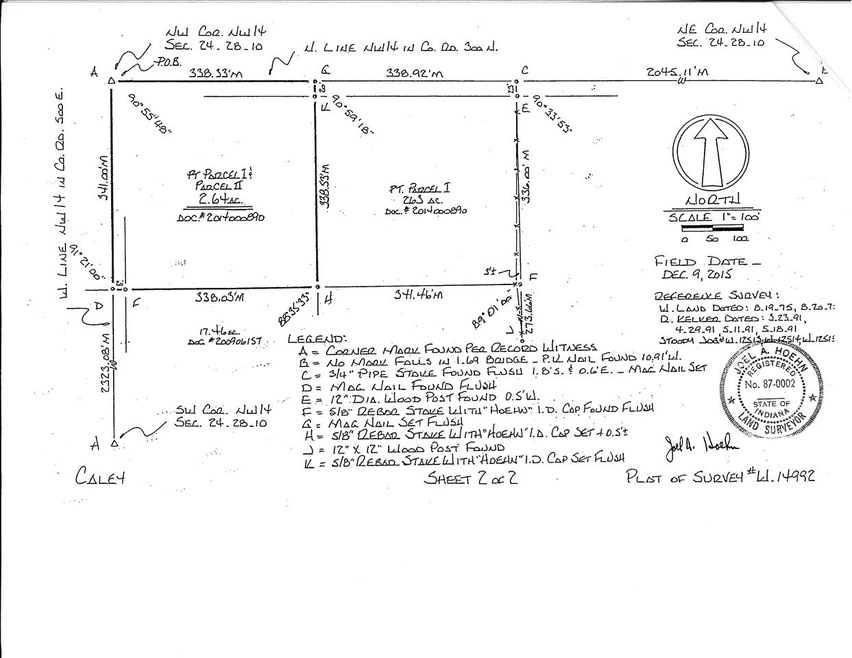 NW COR. NW1/4
SEC. 24-28-10
NE COR. NW1/4
SEC. 24-28-10
N. LINE NW1/4 IN CO. RD. 300 N.
P.O.B.
A
338.33'M
G
338.92'M
C
2045.11'M
W. LINE NW1/4 IN CO. RD. 500 E.
90°55'48"
K
90°59'18"
E
90°33'53"
341.00'M
338.53'M
336.00'M
PT PARCEL I &
PARCEL II
2.64 AC.
DOC.#2014000890
PT. PARCEL I
2.63 AC.
DOC.#2014000890
NORTH
SCALE 1"=100'
0 50 100
FIELD DATE -
DEC. 9, 2015
91°21'00"
5'±
D
F
338.03'M
88°35'33"
H
341.46'M
89°01'00"
J
273.66'M
2323.08'M
17.46 AC.
DOC #200906157
REFERENCE SURVEY:
W. LAND DATED: 8.19-75, 8.20.7
R. KELKER DATED: 3.23.91,
4.29.91 5.11.91, 5.18.91
STOODY JOB#W.12513,W.12514,W.1251
LEGEND:
A = CORNER MARK FOUND PER RECORD WITNESS
B = NO MARK FALLS IN 1.69 BRIDGE - P.K. NAIL FOUND 10.91'W.
C = 3/4" PIPE STAKE FOUND FLUSH 1.8'S. & 0.6'E. - MAG NAIL SET
D = MAG NAIL FOUND FLUSH
E = 12" DIA. WOOD POST FOUND 0.5'W.
F = 5/8" REBAR STAKE WITH "HOEHN" I.D. CAP FOUND FLUSH
G = MAG NAIL SET FLUSH
H = 5/8" REBAR STAKE WITH "HOEHN" I.D. CAP SET +0.5'±
J = 12" X 12" WOOD POST FOUND
K = 5/8" REBAR STAKE WITH "HOEHN" I.D. CAP SET FLUSH
SW COR. NW1/4
SEC. 24-28-10
A
JOEL A. HOEHN
REGISTERED
No. 87-0002
STATE OF
INDIANA
LAND SURVEYOR
Joel A. Hoehn
CALEY
SHEET 2 OF 2
PLAT OF SURVEY #W.14992